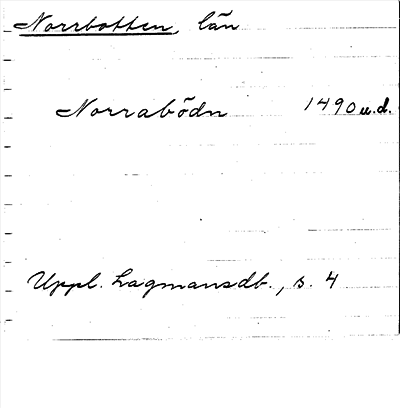 Norrbotten, län
Norrabödn 1490 u.d.
Uppl. Lagmansdb., s. 4